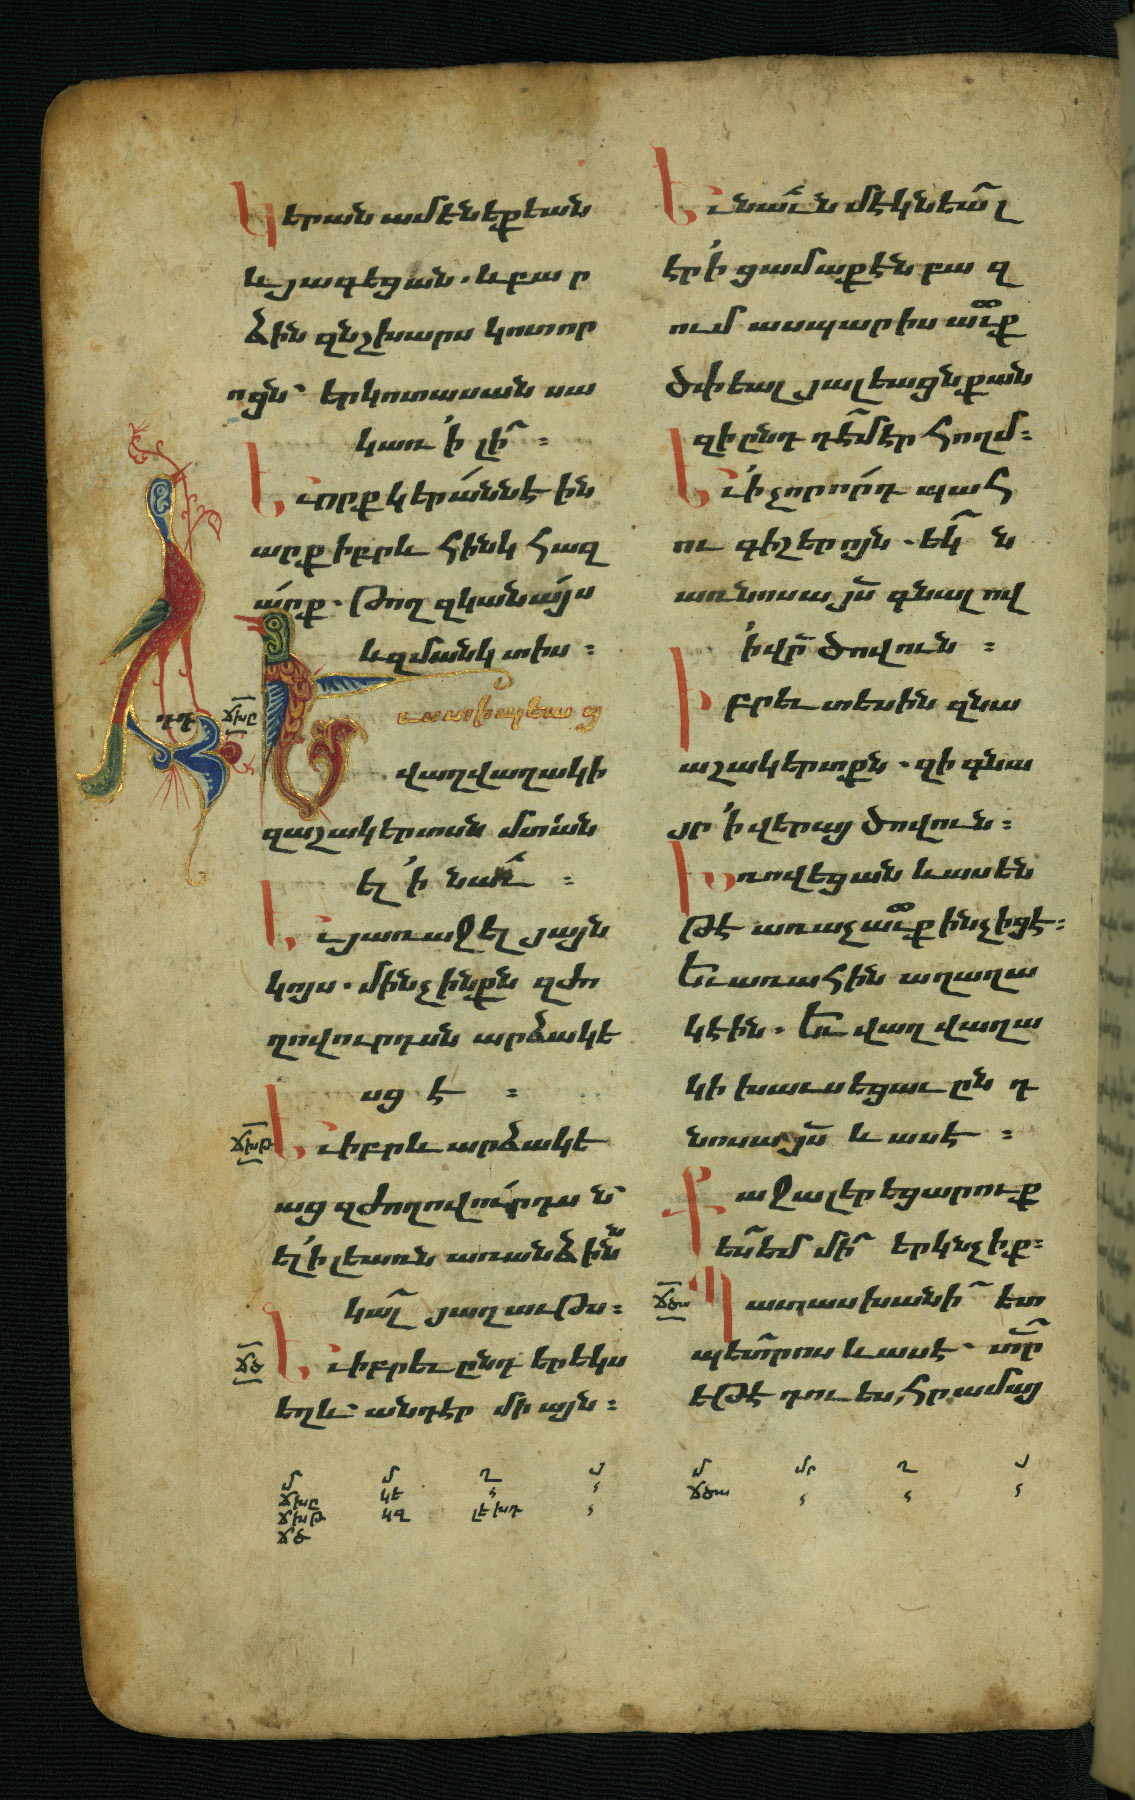 Կերան ամէնեքեան
և յագեցան. և բար
ձին զնշխարս կոտոր
ոցն՝ երկոտասան սա
կառ ՚ի լի :
Եւ որք կերանն է ին
արք իբրև հինկ հազ
արք. Թող զկանայս
և զմանկտիս :
Եւ ստիպեաց
վաղվաղակի
զաշակերտսն մտան
ել ՚ի նաւ :
Եւ յառաջել յայն
կոյս. մինչ ինքն զժո
ղովուրդսն արձակե
սց է :
Եւ իբրև արձակե
աց զժողովուրդսն
ել ՚ի լեառն առանձինն
կալ յաղաւթս :
Եւ իբրեւ ընդ երեկս
եղև՝ անդէր միայն :
դդ
ճխը
ճխթ
ճծ
մ մ ղ յ
ճխը կե
ճխթ կզ լե խդ
ճծ
Եւ նաւն մէկնեալ
էր ՚ի ցամաքէն բազ
ում ասպարիսաւք
ծփեալ յալեացն քան
զի ընդդէմ էր հողմ :
Եւ ՚ի չորորդ պահ
ու գիշերոյն. եկն
առ նոսա յս գնալով
՚ի վր ծովուն :
Իբրեւ տեսին զնա
աշակերտքն. զի գնա
յր ՚ի վերայ ծովուն :
Խռովեցան և ասեն
թէ առաչաւք ինչ իցէ :
Եւ առ ահին աղաղա
կէին. Եւ վաղվաղա
կի խաւսեցաւ ընդ
նոսա յս և ասէ :
Քաջալերեցարուք
ես եմ մի երկնչիք :
Պատասխանի ետ
պետրոս և ասէ. տր
եթէ դու ես, հրամայ
ճծա
մ մր ղ յ
ճծա